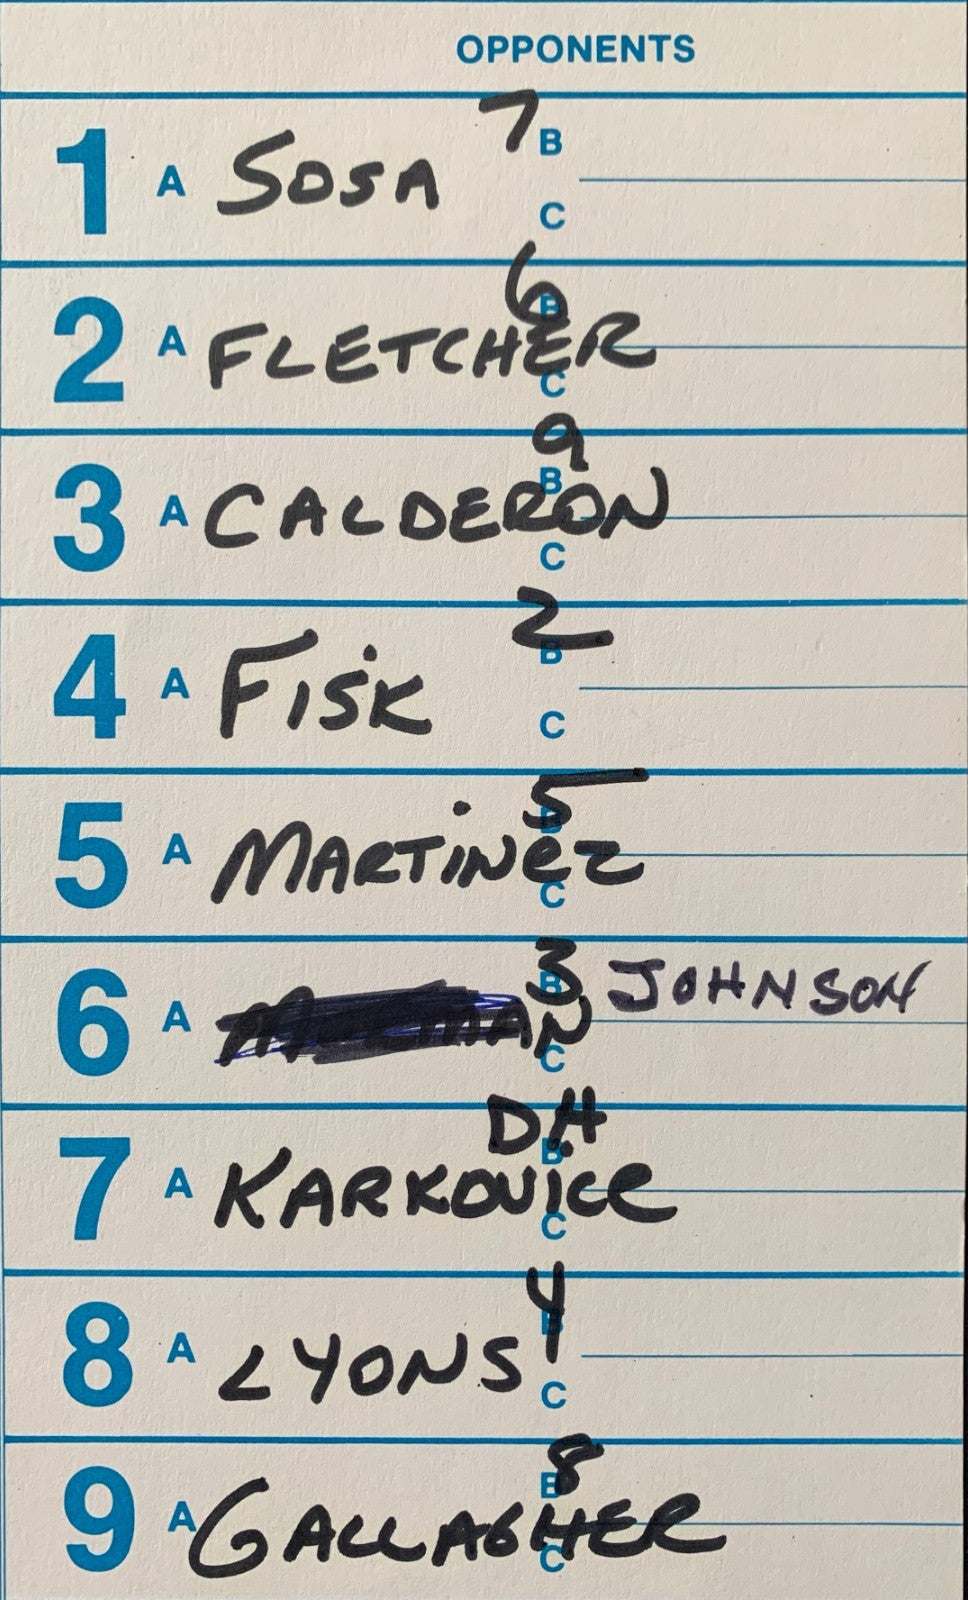 OPPONENTS
1 A SOSA 7 B
C
2 A FLETCHER 6 B
C
3 A CALDERON 9 B
C
4 A FISK 2 B
C
5 A MARTINEZ 5 B
C
6 A 3 B JOHNSON
C
7 A KARKOVICE DH B
C
8 A LYONS 4 B
C
9 A GALLAGHER 8 B
C